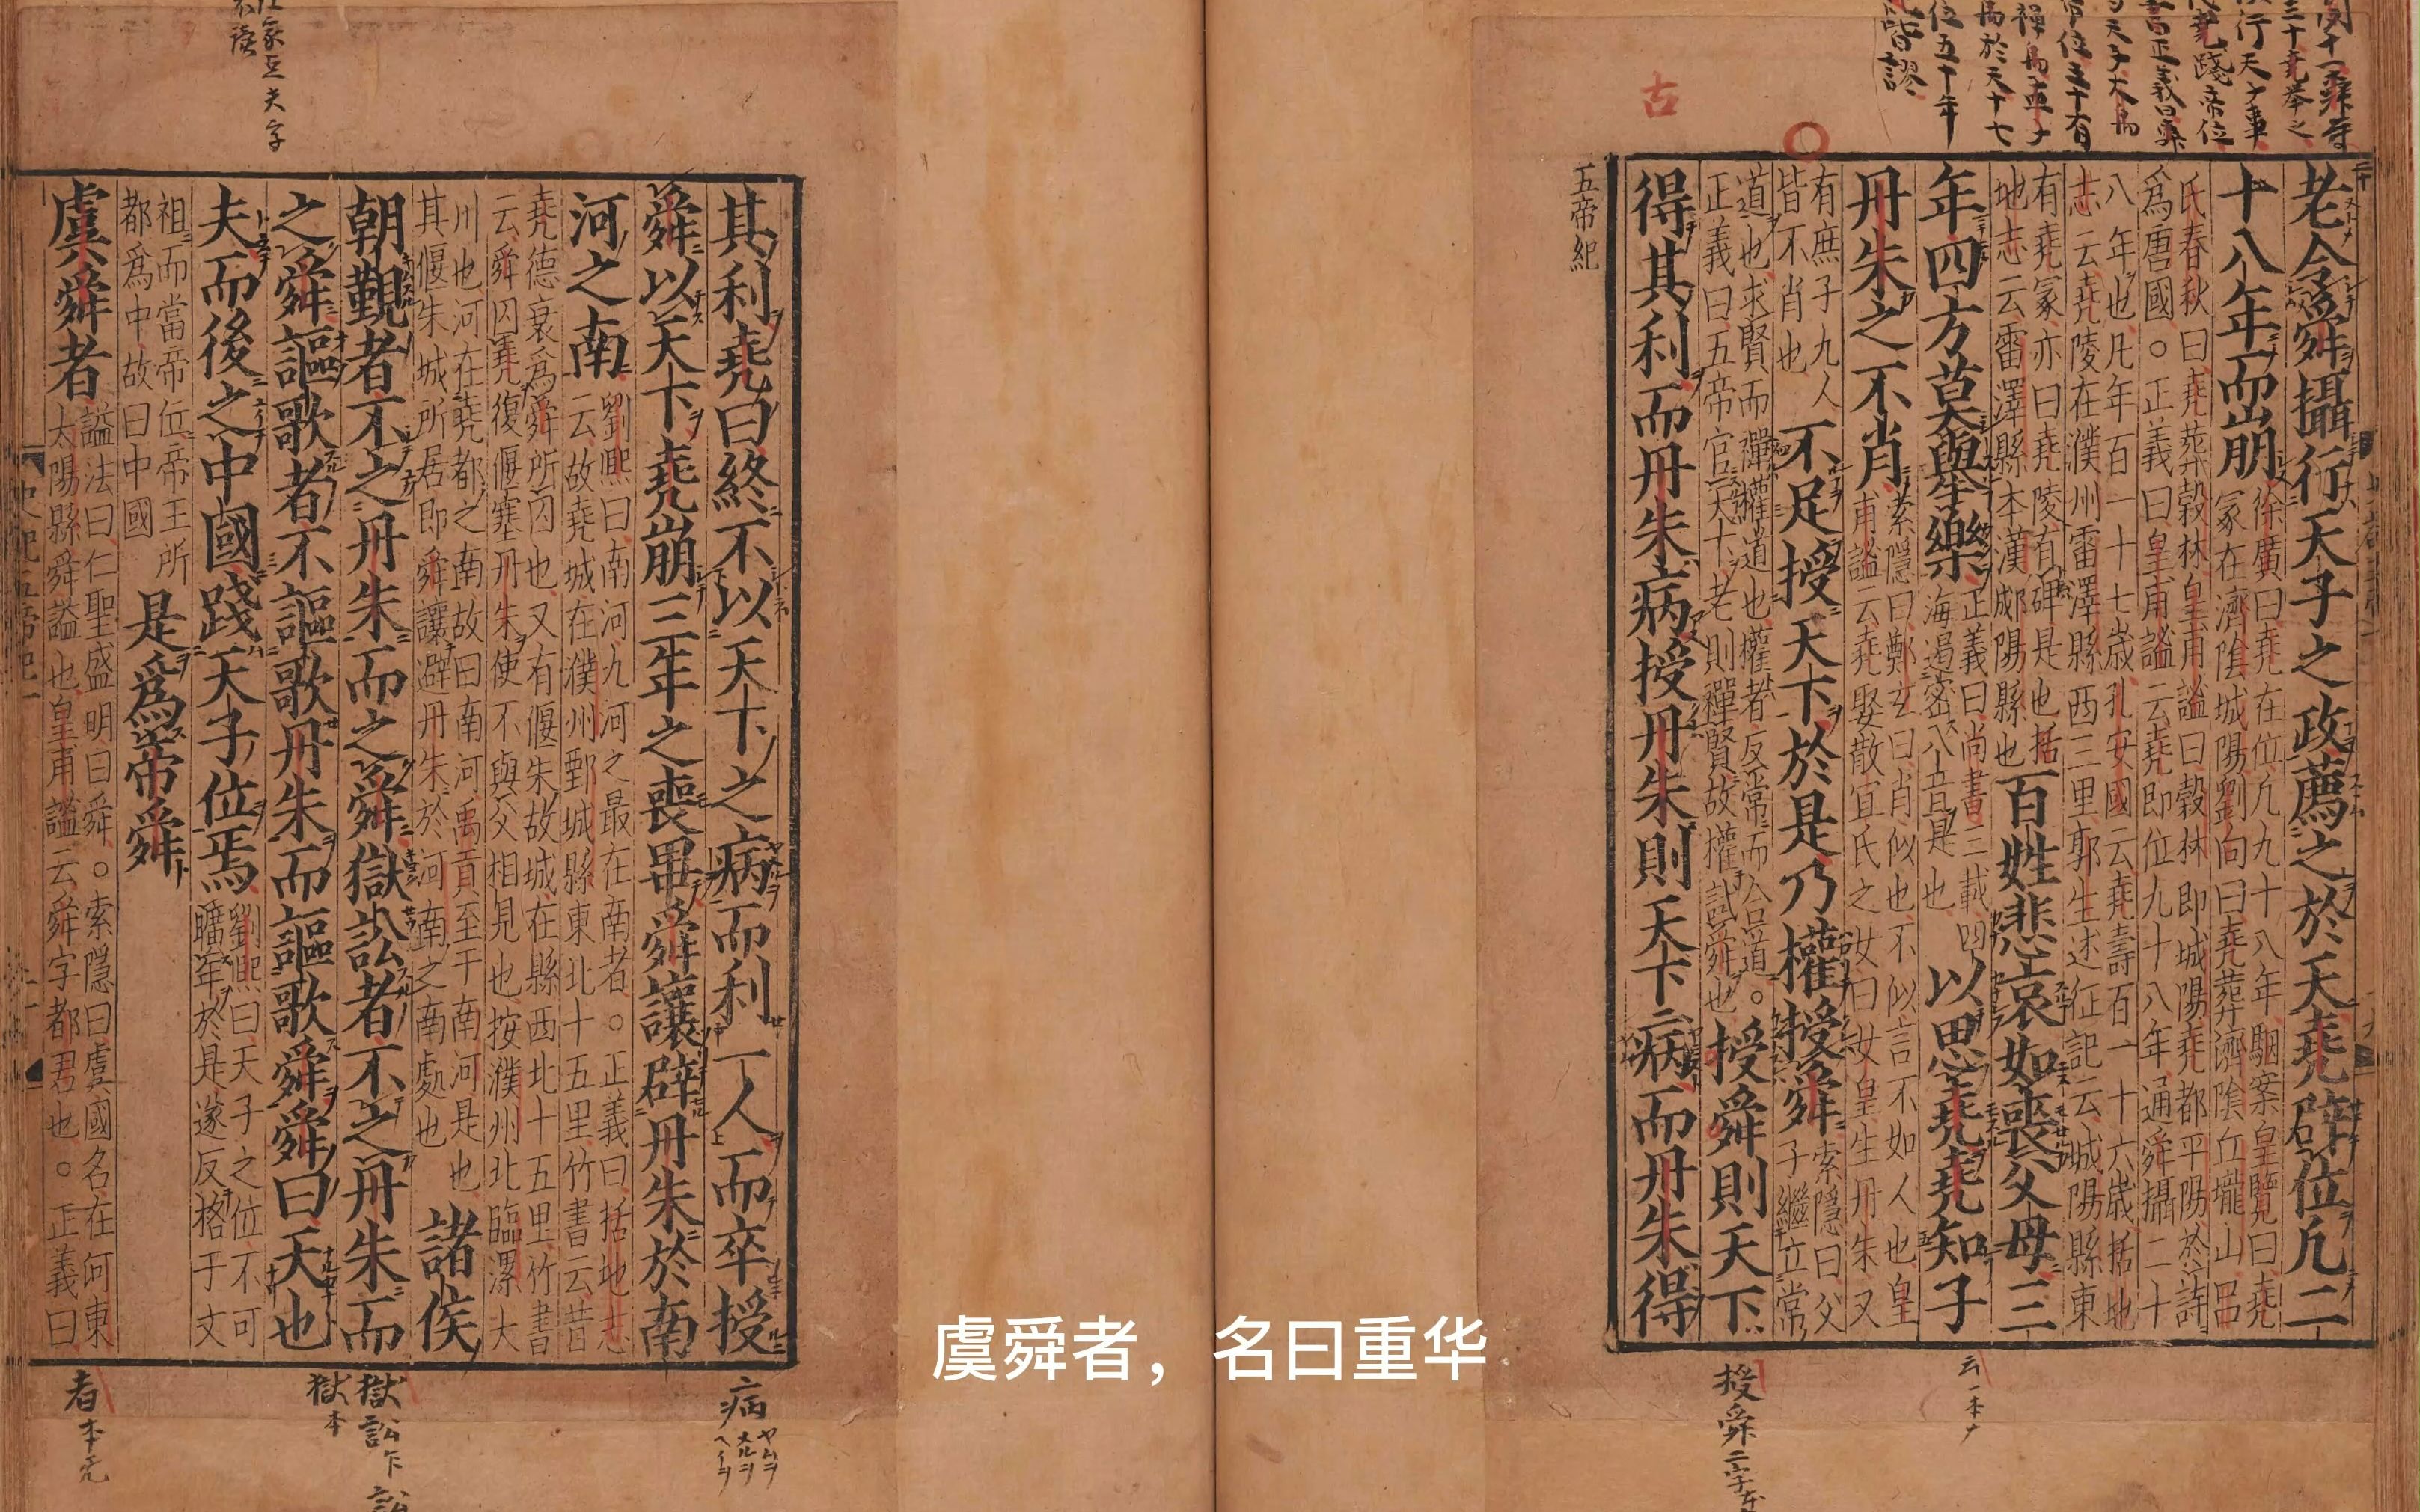 老令舜攝行天子之政薦之於天堯辟位凡二
十八年而崩徐廣曰堯在位凡九十八年駰案皇覽曰堯
冢在濟陰城陽劉向曰堯葬濟陰丘壠山呂
氏春秋曰堯葬穀林皇甫謐曰穀林即城陽堯都平陽於詩
爲唐國。正義曰皇甫謐云堯即位九十八年通舜攝二十
八年也凡年百一十七歲孔安國云堯壽百一十六歲括地
志云堯陵在濮州雷澤縣西三里郭生述征記云城陽縣東
有堯冢亦曰堯陵有碑是也括
地志云雷澤縣本漢郕陽縣也百姓悲哀如喪父母三
年四方莫舉樂正義曰尚書三載四
海遏密八音是也以思堯堯知子
丹朱之不肖索隱曰鄭玄曰肖似也不似言不如人也皇
甫謐云堯娶散宜氏之女曰女皇生丹朱又
有庶子九人
皆不肖也不足授天下於是乃權授舜索隱曰父
子繼立常
道也求賢而禪權道也權者反常而合道。
正義曰五帝官天下老則禪賢故權試舜也授舜則天下
得其利而丹朱病授丹朱則天下病而丹朱得
五帝紀
其利堯曰終不以天下之病而利一人而卒授
舜以天下堯崩三年之喪畢舜讓辟丹朱於南
河之南劉熙曰南河九河之最在南者。正義曰括地志
云故堯城在濮州鄄城縣東北十五里竹書云昔
堯德衰爲舜所囚也又有偃朱故城在縣西北十五里竹書
云舜囚堯復偃塞丹朱使不與父相見也按濮州北臨漯大
川也河在堯都之南故曰南河禹貢至于南河是也
其偃朱城所居即舜讓避丹朱於河南之南處也諸侯
朝覲者不之丹朱而之舜獄訟者不之丹朱而
之舜謳歌者不謳歌丹朱而謳歌舜舜曰天也
夫而後之中國踐天子位焉劉熙曰天子之位不可
曠年於是遂反格于文
祖而當帝位帝王所
都爲中故曰中國是爲帝舜
虞舜者謚法曰仁聖盛明曰舜。索隱曰虞國名在河東
太陽縣舜謚也皇甫謐云舜字都君也。正義曰
虞舜者，名曰重华